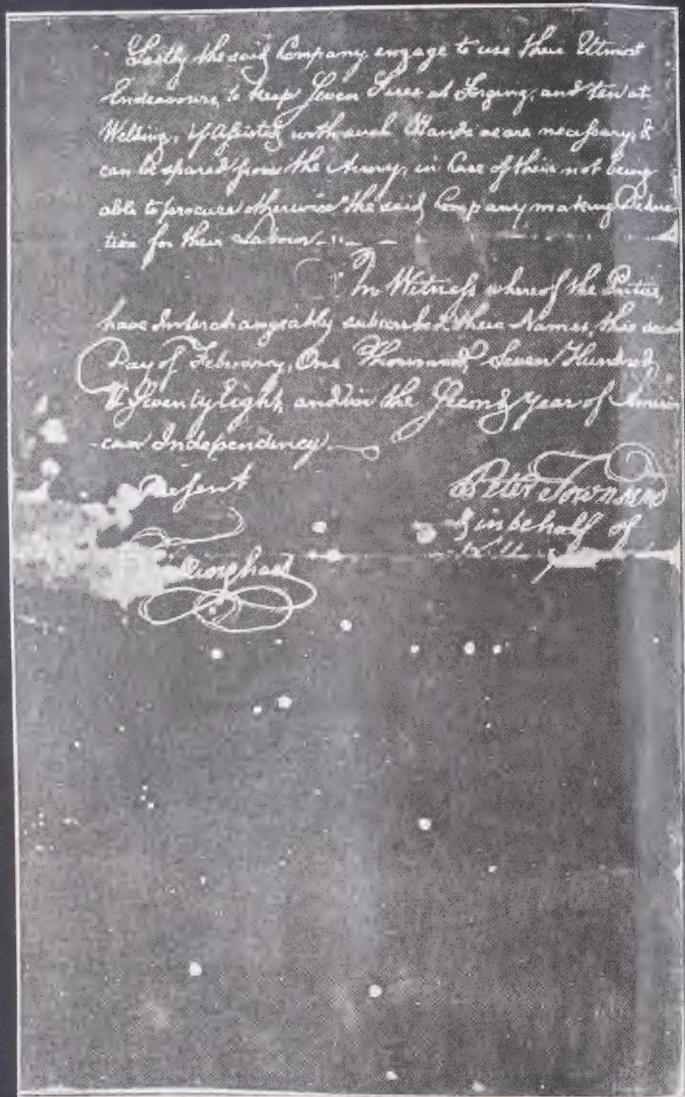 Lastly the said Company engage to use their Utmost
Endeavours, to keep Seven Fires at Forging, and ten at
Welding, if assisted with such Hands as are necessary, &
can be spared from the Army, in Case of their not being
able to procure otherwise the said Company making Deduc
tion for their Labour
In Witness whereof the Parties,
have Interchangeably subscribed their Names, this
Day of February, One Thousand, Seven Hundred,
& Seventy Eight, and in the Second year of Ameri
can Independency
Present
Peter Townsend
in behalf of